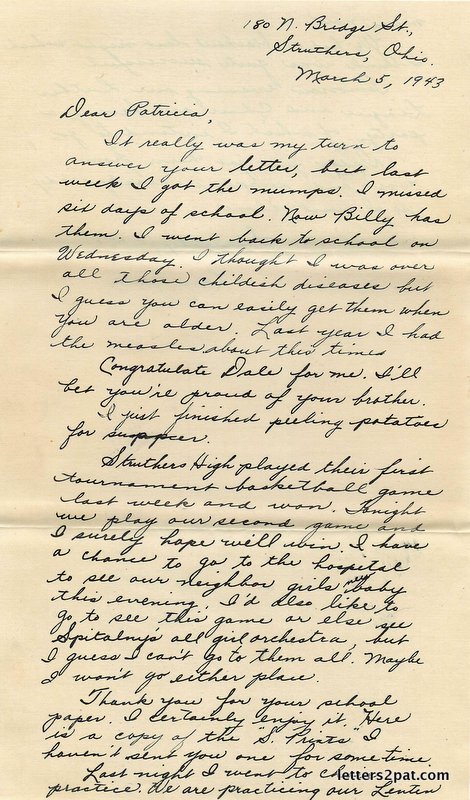 180 N. Bridge St.,
Struthers, Ohio.
March 5, 1943
Dear Patricia,
It really was my turn to
answer your letter, but last
week I got the mumps. I missed
six days of school. Now Billy has
them. I went back to school on
Wednesday. I thought I was over
all those childish diseases but
I guess you can easily get them when
you are older. Last year I had
the measles about this time.
Congratulate Dale for me. I'll
bet you're proud of your brother.
I just finished peeling potatoes
for supper.
Struthers High played their first
tournament basketball game
last week and won. Tonight
we play our second game and
I surely hope we'll win. I have
a chance to go to the hospital
to see our neighbor girls new baby
this evening. I'd also like to
go to see this game or else see
Spitalnys all girl orchestra, but
I guess I can't go to them all. Maybe
I won't go either place.
Thank you for your school
paper. I certainly enjoy it. Here
is a copy of the "S. Prints" I
haven't sent you one for some time.
Last night I went to
practice. We are practicing our Lenten
letters2pat.com